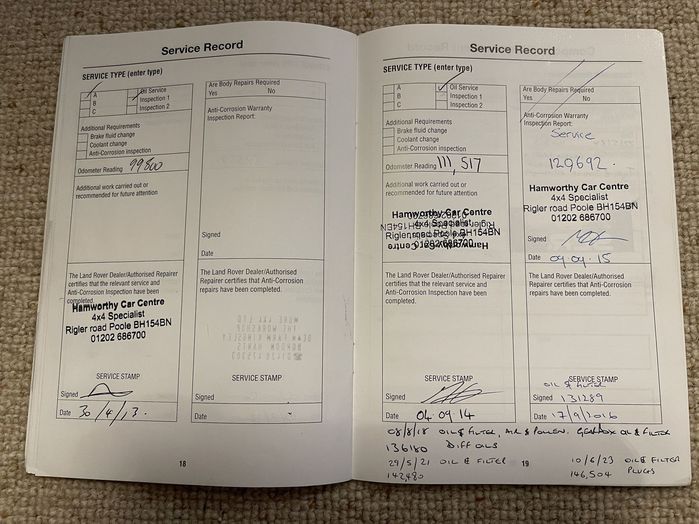 Service Record
SERVICE TYPE (enter type)
A
B
C
Oil Service
Inspection 1
Inspection 2
Additional Requirements
Brake fluid change
Coolant change
Anti-Corrosion inspection
Odometer Reading 99800
Additional work carried out or
recommended for future attention
The Land Rover Dealer/Authorised Repairer
certifies that the relevant service and
Anti-Corrosion Inspection have been
completed.
Hamworthy Car Centre
4x4 Specialist
Rigler road Poole BH154BN
01202 686700
SERVICE STAMP
Signed
Date 30/4/13.
Are Body Repairs Required
Yes No
Anti-Corrosion Warranty
Inspection Report:
Signed
Date
The Land Rover Dealer/Authorised
Repairer certifies that Anti-Corrosion
repairs have been completed.
SERVICE STAMP
Signed
Date
18
Service Record
SERVICE TYPE (enter type)
A
B
C
Oil Service
Inspection 1
Inspection 2
Additional Requirements
Brake fluid change
Coolant change
Anti-Corrosion inspection
Odometer Reading 111,517
Additional work carried out or
recommended for future attention
Hamworthy Car Centre
4x4 Specialist
Rigler road Poole BH154BN
01202 686700
The Land Rover Dealer/Authorised Repairer
certifies that the relevant service and
Anti-Corrosion Inspection have been
completed.
SERVICE STAMP
Signed
Date 04 09 14
Are Body Repairs Required
Yes No
Anti-Corrosion Warranty
Inspection Report:
Service
129692.
Hamworthy Car Centre
4x4 Specialist
Rigler road Poole BH154BN
01202 686700
Signed
Date 09.09.15
The Land Rover Dealer/Authorised
Repairer certifies that Anti-Corrosion
repairs have been completed.
SERVICE STAMP
Oil & filter
Signed 131289
Date 17/9/2016
08/8/18 OIL & FILTER, AIR & POLLEN. GEARBOX OIL & FILTER
136180 DIFF OILS
29/5/21 OIL & FILTER
142,480
19
10/6/23 OIL & FILTER
146,504 PLUGS